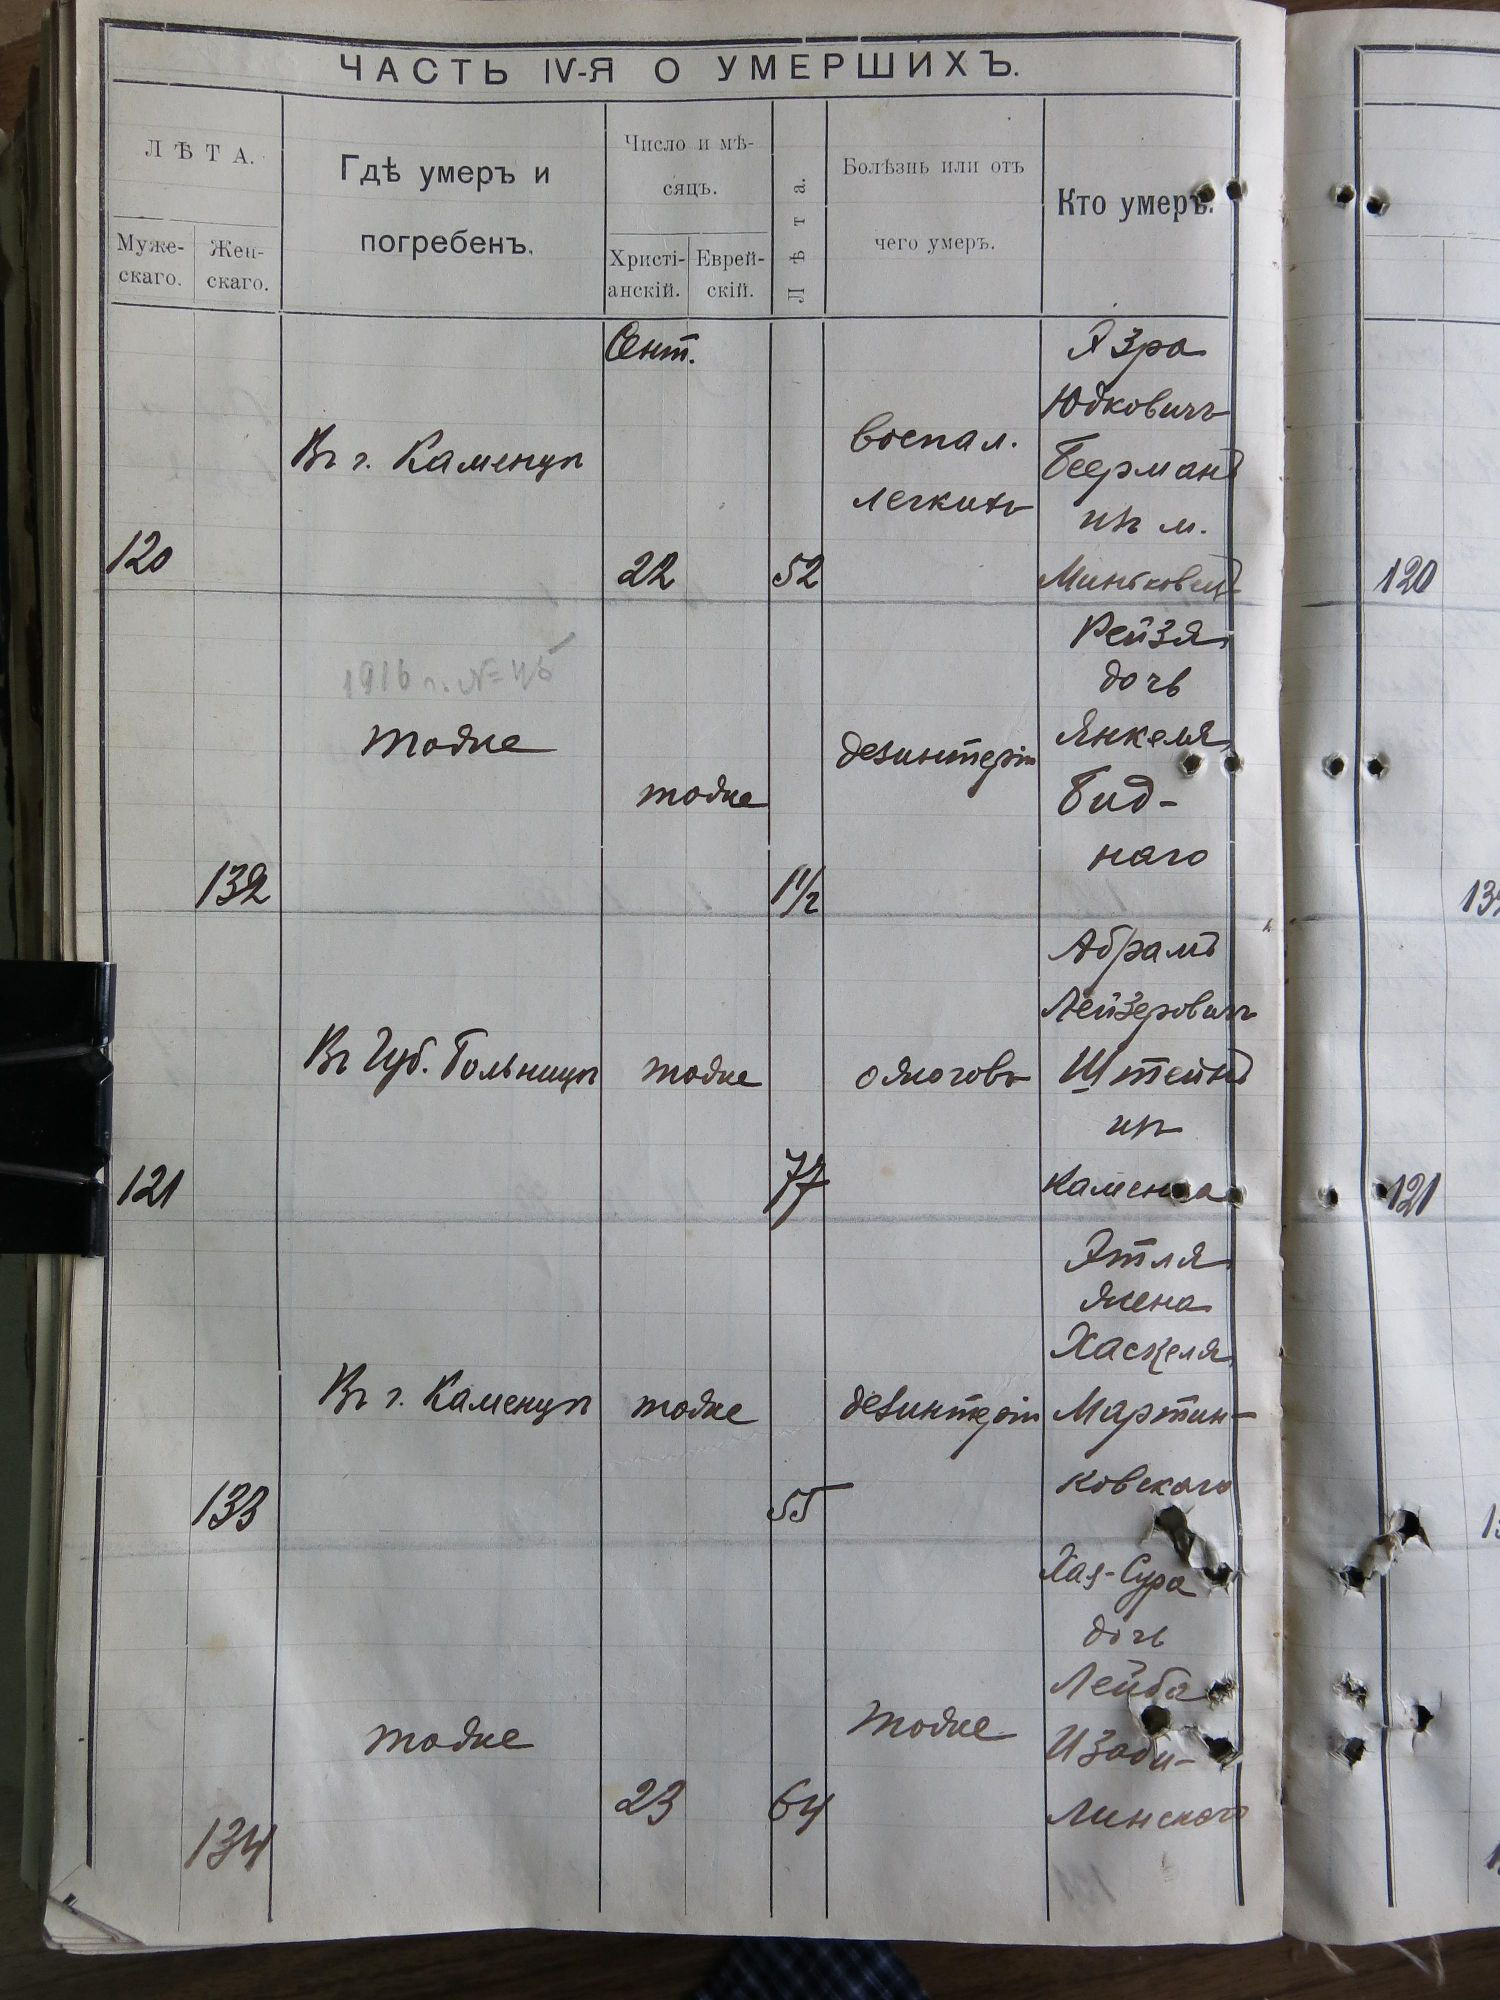 ЧАСТЬ IV-Я О УМЕРШИХЪ.
ЛѢТА.
Муже-
скаго.
Жен-
скаго.
Гдѣ умеръ и
погребенъ.
Число и мѣ-
сяцъ.
Христі-
анскій.
Еврей-
скій.
Лѣта.
Болѣзнь или отъ
чего умеръ.
Кто умеръ.
120
Въ г. Каменцѣ
Сент.
22
52
воспал.
легкихъ
Азра
Юдковичъ
Беерманъ
изъ м.
Миньковецъ
120
132
1916 г. №
тоже
тоже
1 1/2
дезинтеріи
Рейзя
дочь
Янкеля
Бид-
наго
121
Въ Губ. Больницѣ
тоже
77
ожоговъ
Абрамъ
Лейзеровичъ
Штейнъ
изъ
Каменца
121
133
Въ г. Каменцѣ
тоже
55
дезинтеріи
Этля
жена
Хаскеля
Мартин-
ковскаго
134
тоже
23
64
тоже
Хая-Сура
дочь
Лейба
Изоби-
линскаго